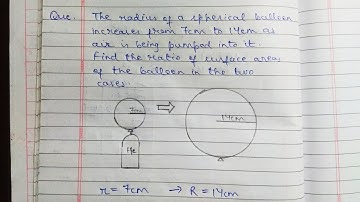 Que. The radius of a spherical balloon
increases from 7cm to 14cm as
air is being pumped into it.
Find the ratio of surface areas
of the balloon in the two
cases.
7cm
14cm
He
r = 7cm → R = 14cm